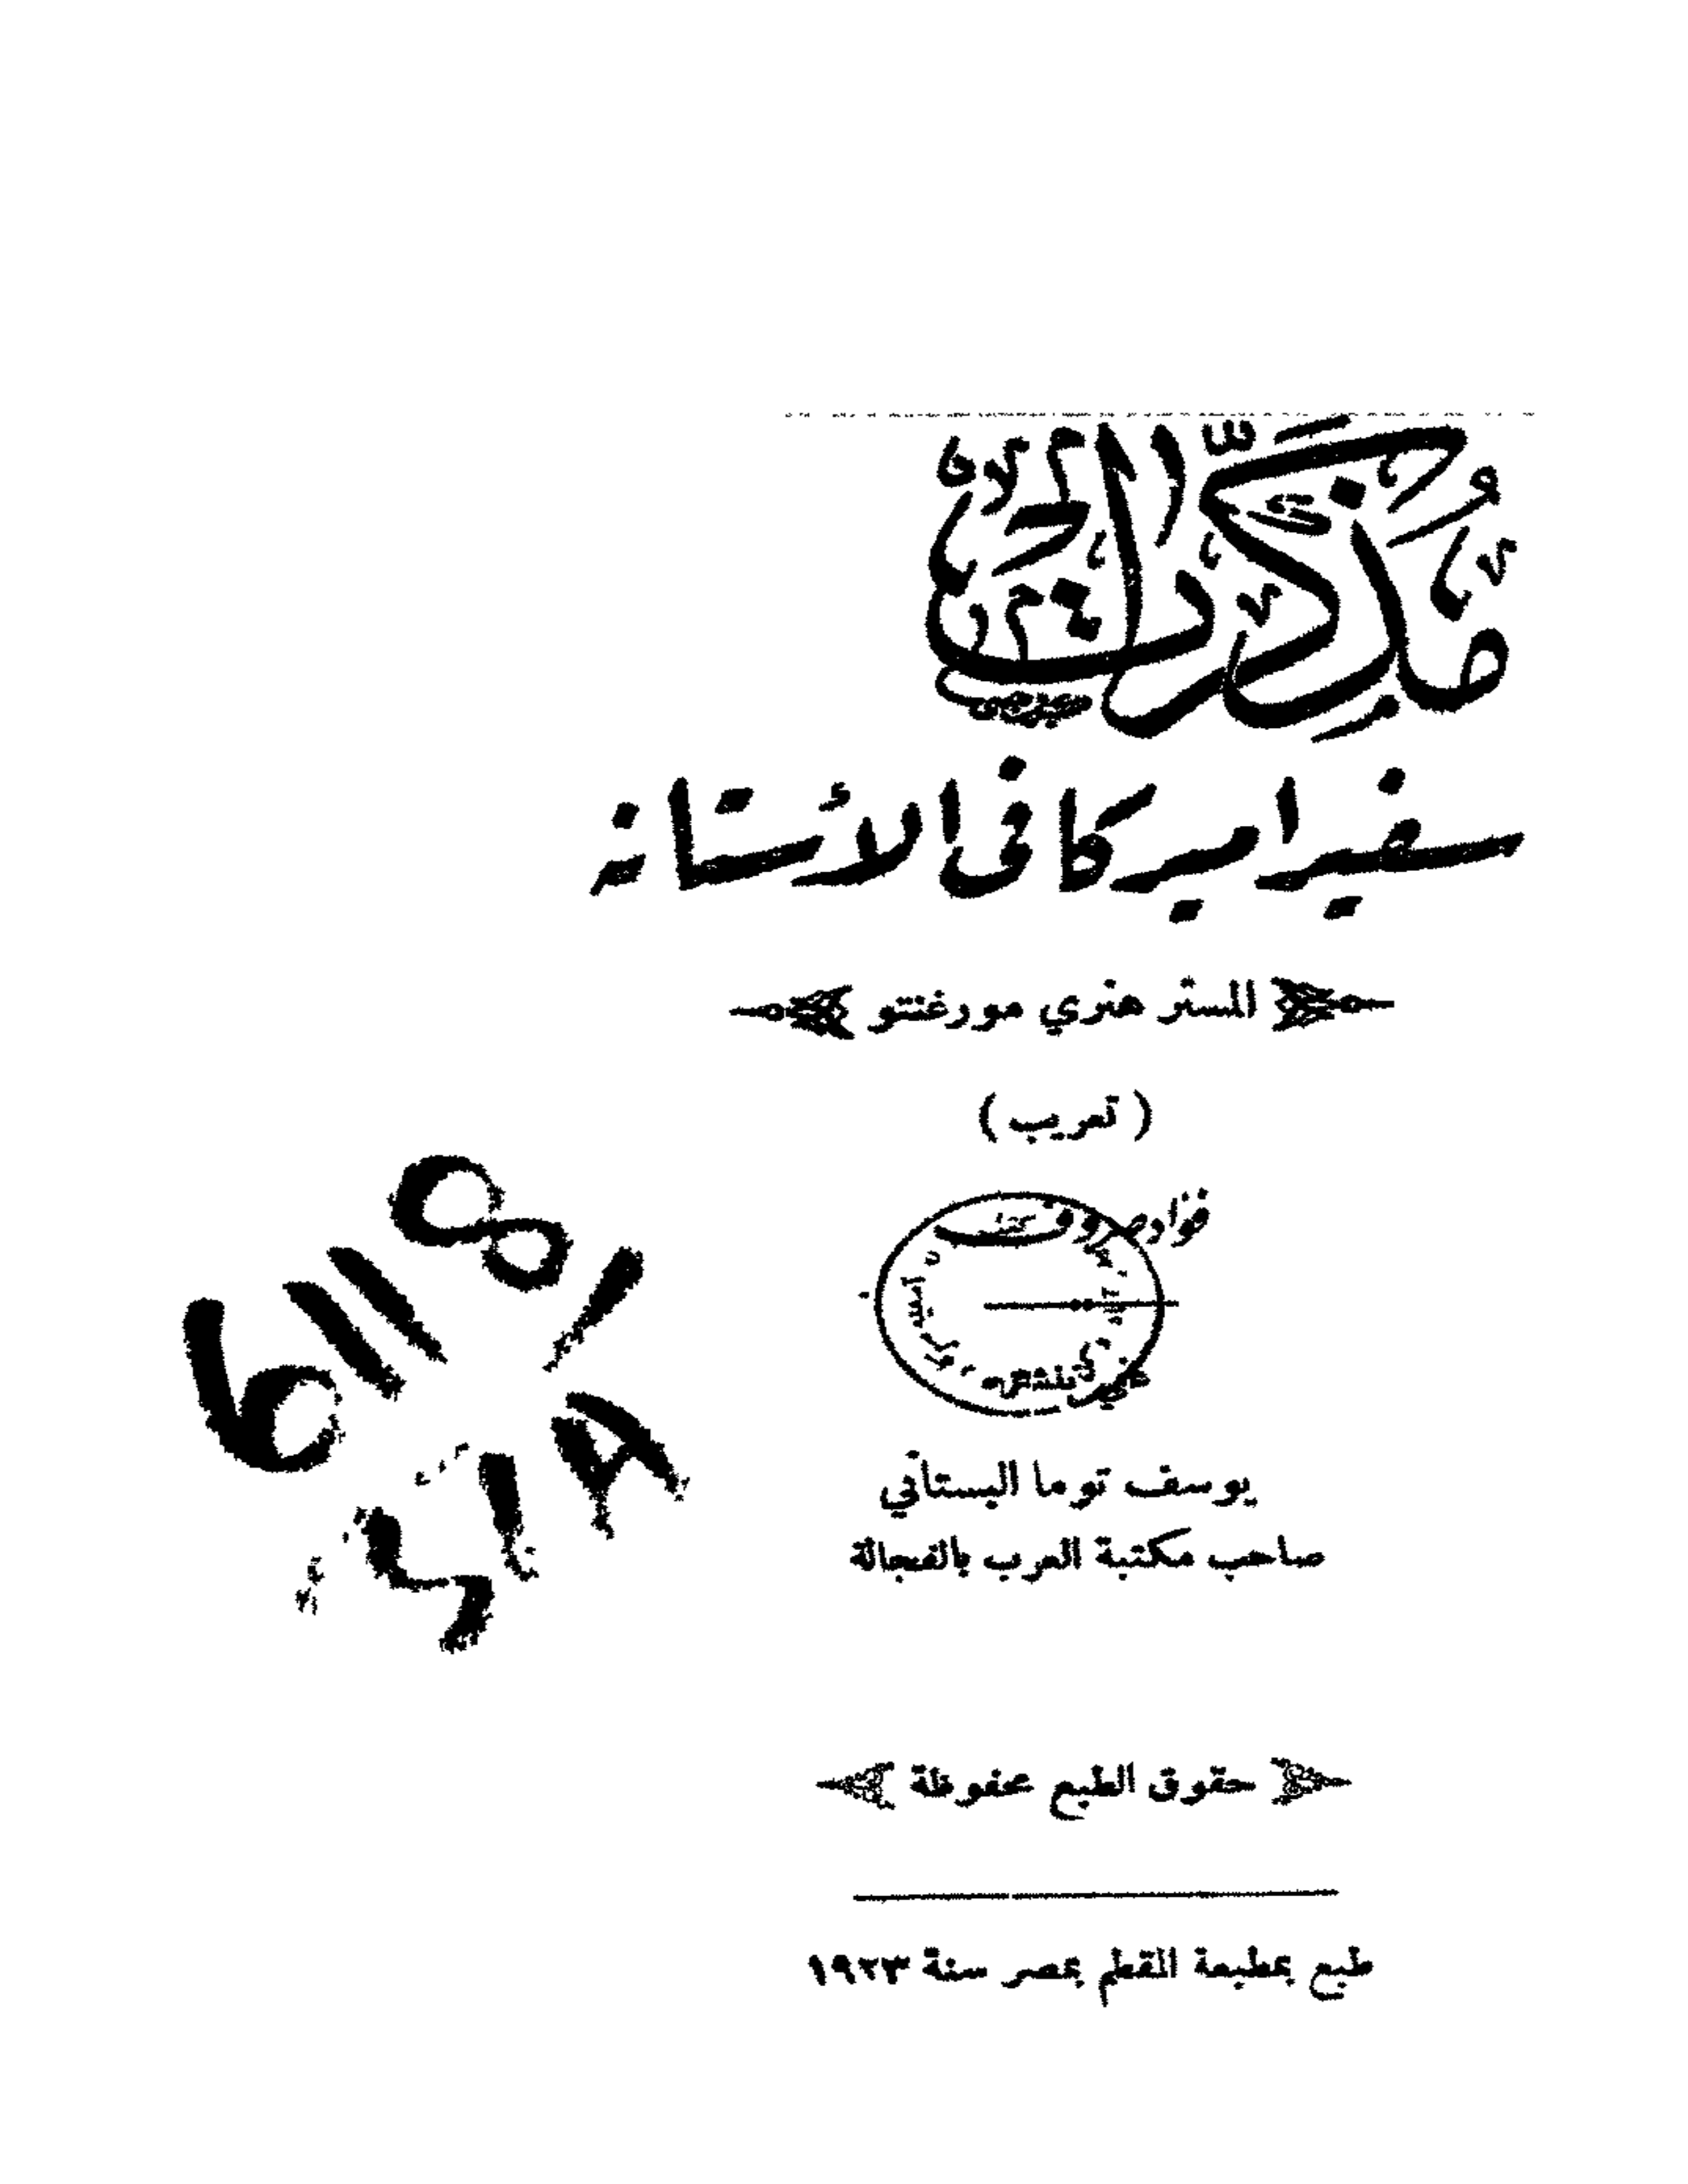 مذكرات
سفير اميركا في الأستانه
المستر هنري مورغنتو
( تعريب )
فؤاد صروف
يوسف توما البستاني
صاحب مكتبة العرب بالفجالة
حقوق الطبع محفوظة
طبع بمطبعة المقطم بمصر سنة ١٩٢٣